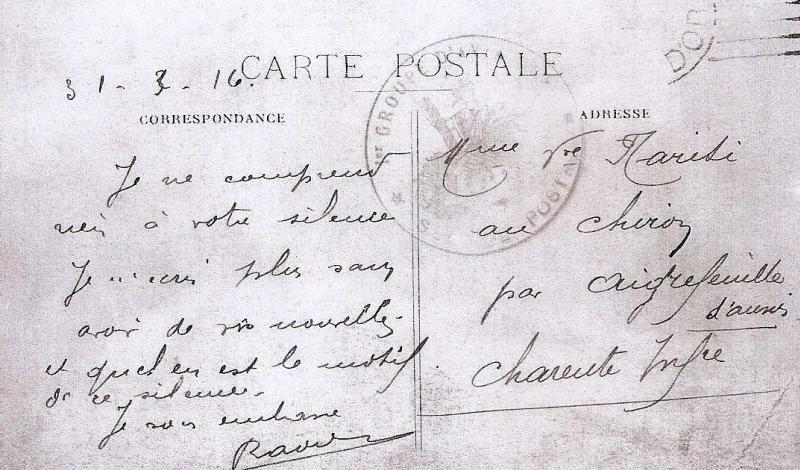 31 - 3 - 16.
CARTE POSTALE
CORRESPONDANCE
Je ne comprend
rien à votre silence
Je plus sans
avoir de vos nouvelles
et quel en est le motif
de ce silence.
Je vous embrasse
ADRESSE
Mme Vve
au Chiron
par Aigrefeuille
d'aunis
Charente Infre
1er GROUPE
POSTA